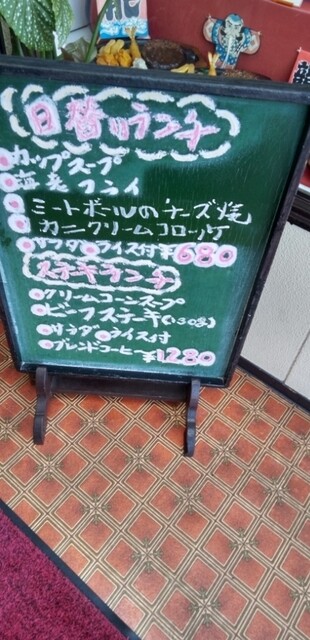 日替りランチ
カップスープ
海老フライ
ミートボールのチーズ焼
カニクリームコロッケ
サラダ ライス付 ¥680
ステーキランチ
クリームコーンスープ
ビーフステーキ(130g)
サラダ ライス付
ブレンドコーヒー ¥1280